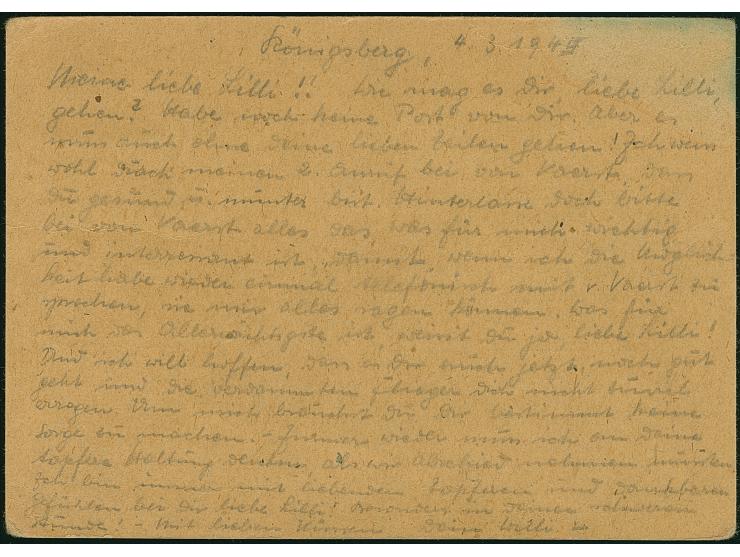 Königsberg, 4. 3. 194
Meine liebe Lilli!! Wie mag es Dir, liebe Lilli,
gehen? Habe noch keine Post von Dir. Aber es
muss auch ohne deine lieben Zeilen gehen! Ich weiss
wohl durch meinen 2. Anruf bei von Vaerst, dass
du gesund u. munter bist. Hinterlasse doch bitte
bei von Vaerst alles das, was für mich wichtig
und interressant ist, damit wenn ich die Möglich-
keit habe wieder einmal telefonisch mit v. Vaerst zu
sprechen, sie mir alles sagen können. Was für
mich das Allerwichtigste ist, weisst du ja, liebe Lilli!
Und ich will hoffen, dass es Dir auch jetzt noch gut
geht und die verdammten Flieger dich nicht zuviel
. Um mich brauchst du Dir bestimmt keine
Sorge zu machen. - Immer wieder muss ich an deine
tapfere Haltung denken, als wir Abschied nehmen mussten.
Ich bin immer mit liebenden tapferen und dankbaren
Gefühlen bei dir liebe Lilli! Besonders in deinen schweren
Stunde! - Mit lieben Küssen Dein Willi.